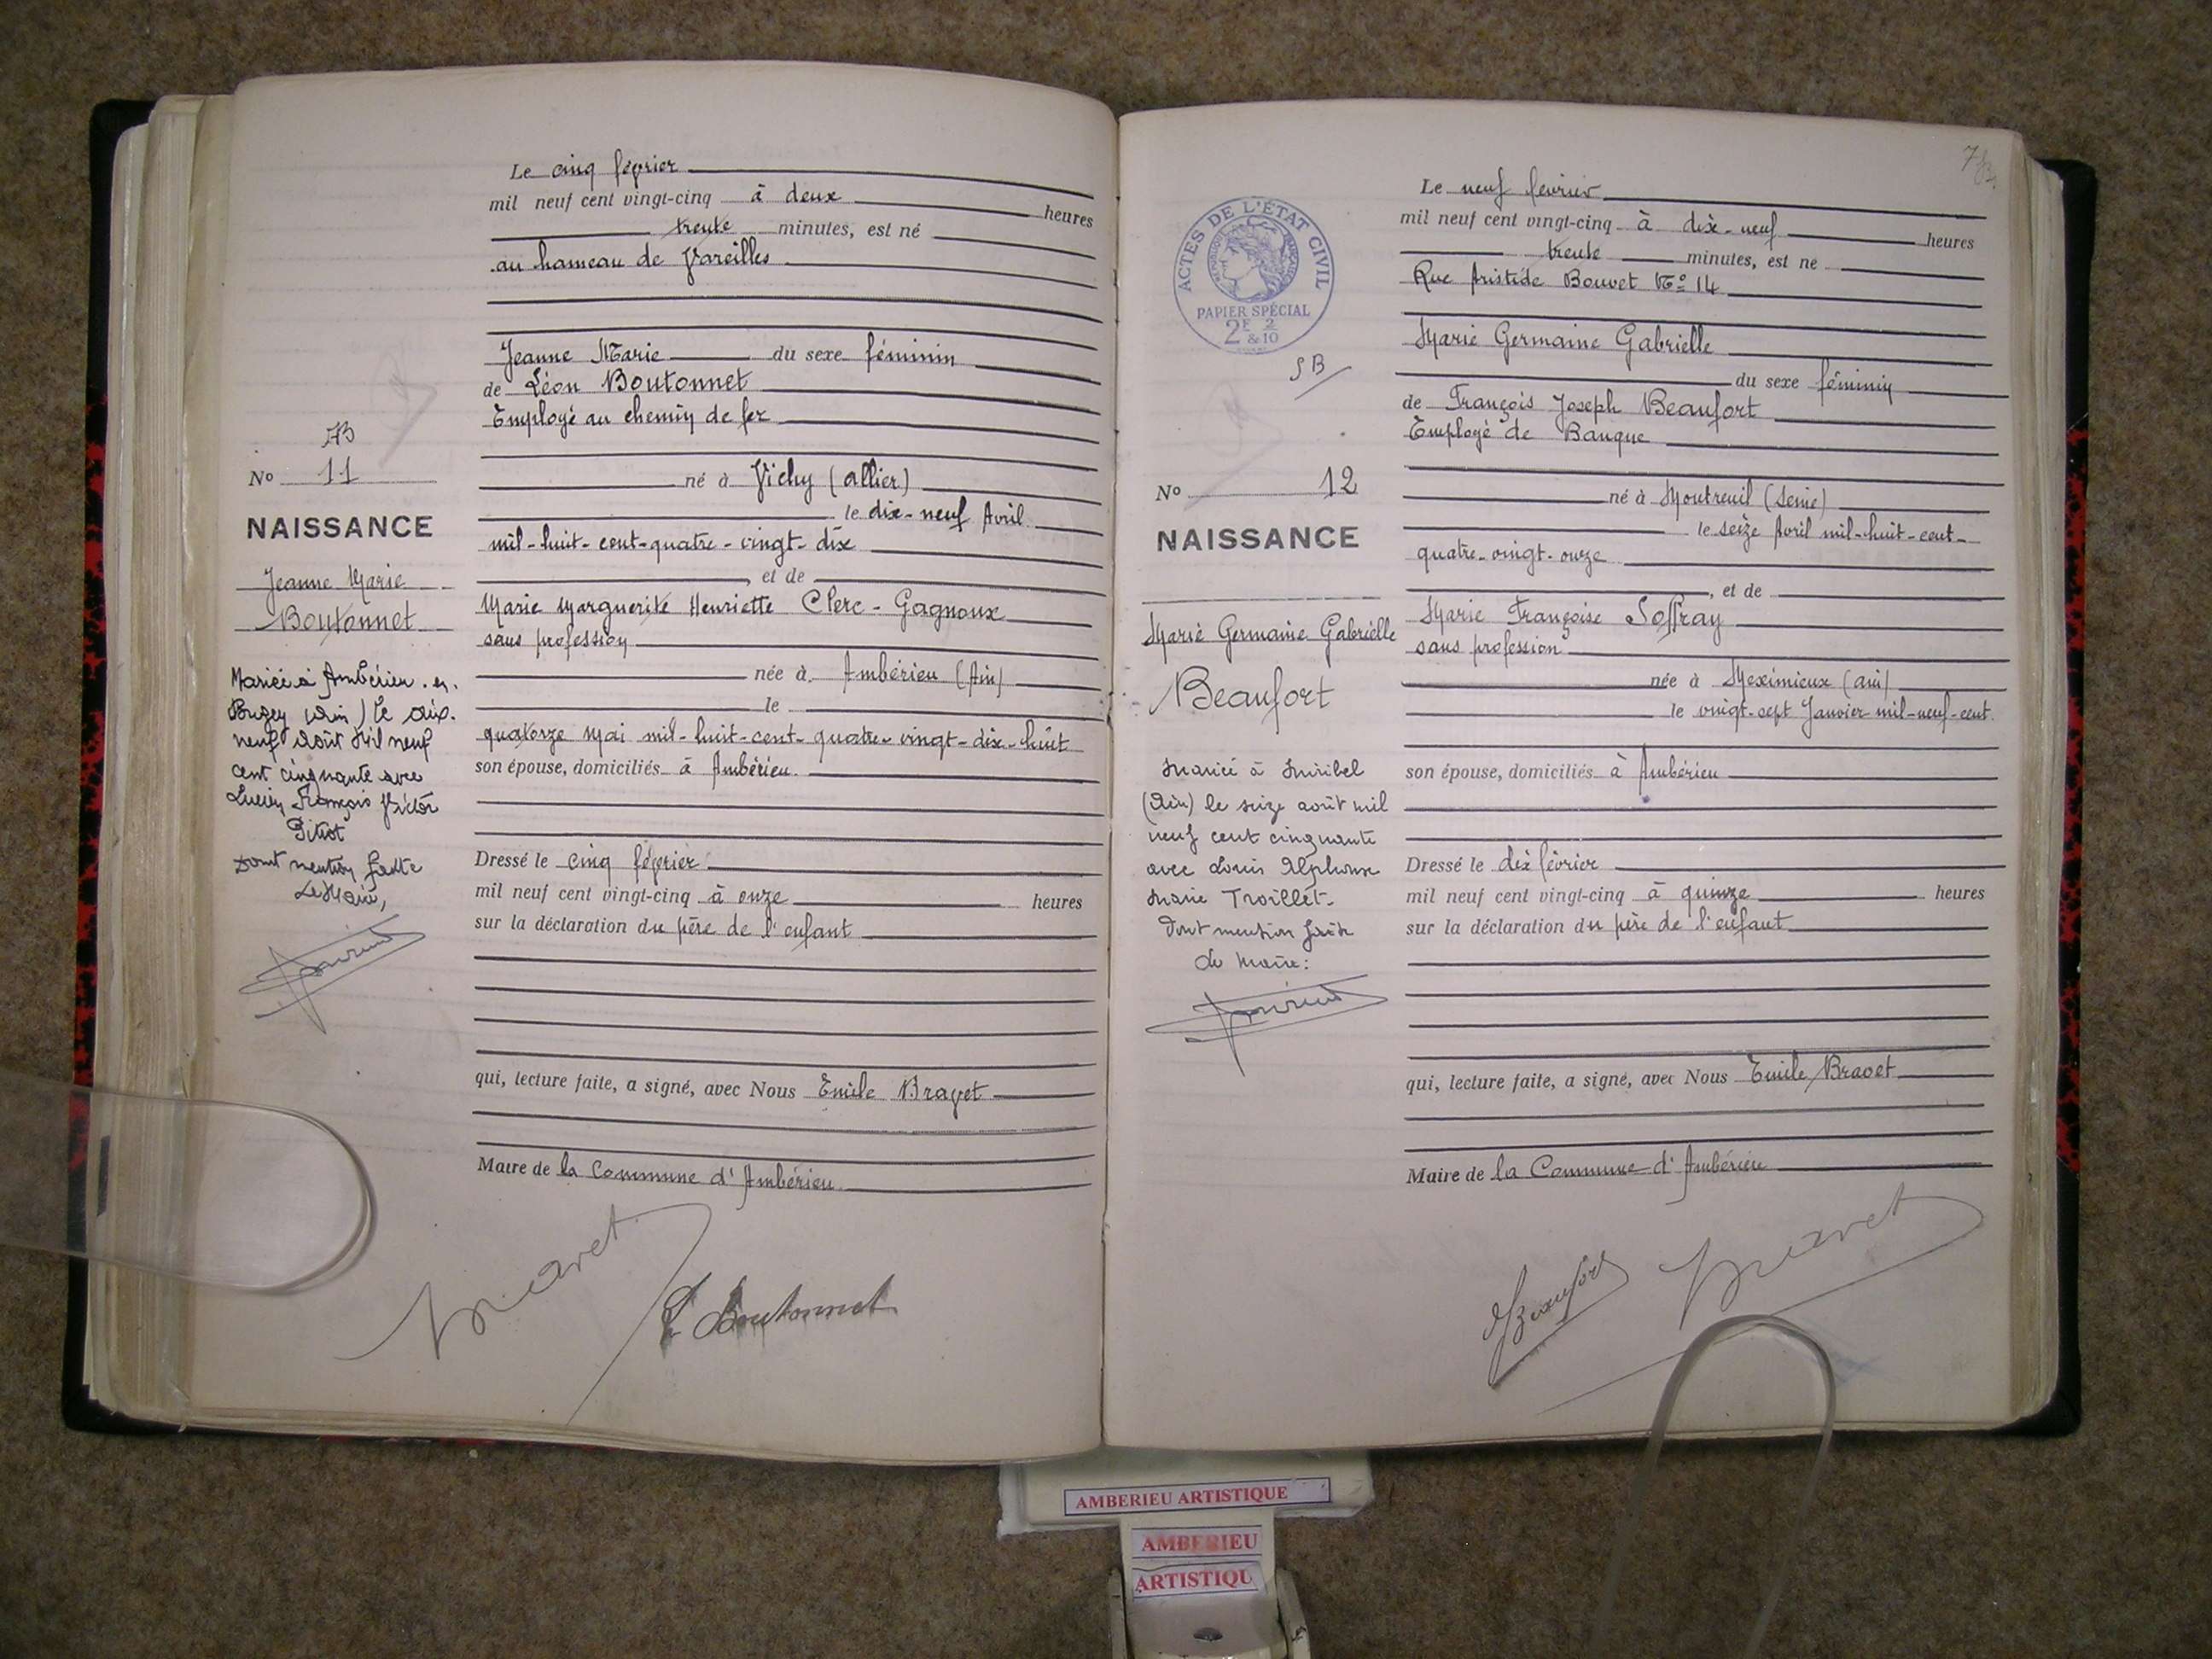 Le cinq février
mil neuf cent vingt-cinq à deux heures
trente minutes, est né
au hameau de Vareilles
Jeanne Marie du sexe féminin
de Léon Boutonnet
Employé au chemin de fer
né à Vichy (Allier)
le dix-neuf Avril
mil-huit-cent-quatre-vingt-dix
, et de
Marie Marguerite Henriette Clerc-Gagnoux
sans profession
née à Ambérieu (Ain)
le
quatorze Mai mil-huit-cent-quatre-vingt-dix-huit
son épouse, domiciliés à Ambérieu.
Dressé le cinq février
mil neuf cent vingt-cinq à onze heures
sur la déclaration du père de l'enfant
qui, lecture faite, a signé, avec Nous Emile Bravet
Maire de la Commune d'Ambérieu
Bravet
L Boutonnet
No 11
NAISSANCE
Jeanne Marie
Boutonnet
Mariée à Ambérieu-en-
Bugey (Ain) le dix-
neuf Août Mil neuf
cent cinquante avec
Lucien François Victor
Dont mention faite
Le Maire,
7
ACTES DE L'ÉTAT CIVIL
RÉPUBLIQUE FRANÇAISE
PAPIER SPÉCIAL
2F 2
&10
SB
No 12
NAISSANCE
Marie Germaine Gabrielle
Beaufort
Mariée à Miribel
(Ain) le seize août mil
neuf cent cinquante
avec Louis Alphonse
Marie Troillet.
Dont mention faite
Le Maire:
Le neuf février
mil neuf cent vingt-cinq à dix-neuf heures
trente minutes, est né
Rue Aristide Bouvet No 14
Marie Germaine Gabrielle
du sexe féminin
de François Joseph Beaufort
Employé de Banque
né à Montreuil (Seine)
le seize Avril mil-huit-cent-
quatre-vingt-onze
, et de
Marie Françoise Soffray
sans profession
née à Meximieux (Ain)
le vingt-sept Janvier mil-neuf-cent.
son épouse, domiciliés à Ambérieu
Dressé le dix février
mil neuf cent vingt-cinq à quinze heures
sur la déclaration du père de l'enfant
qui, lecture faite, a signé, avec Nous Emile Bravet
Maire de la Commune d'Ambérieu
Beaufort
Bravet
AMBERIEU ARTISTIQUE
AMBERIEU
ARTISTIQU